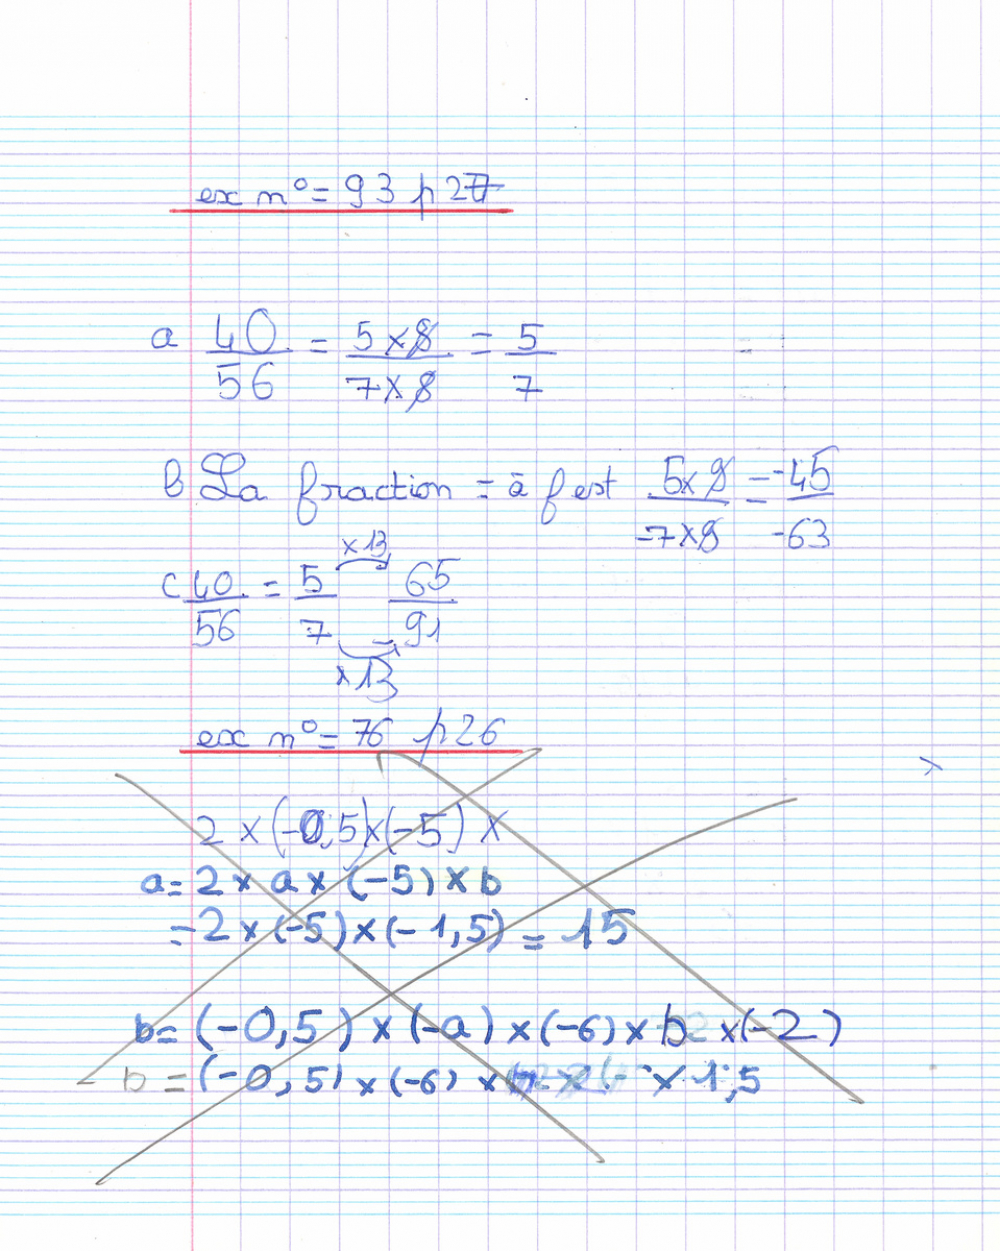 ex n°= 93 p 27
a 40/56 = 5×8/7×8 = 5/7 =
b La fraction = à f est 5×9/-7×9 = -45/-63
×13
c 40/56 = 5/7 = 65/91
×13
ex n°= 76 p 26
2 × (-0,5) × (-5) ×
a = 2 × a × (-5) × b
= 2 × (-5) × (-1,5) = 15
b = (-0,5) × (-a) × (-6) × b × (-2)
b = (-0,5) × (-6) × × 1,5